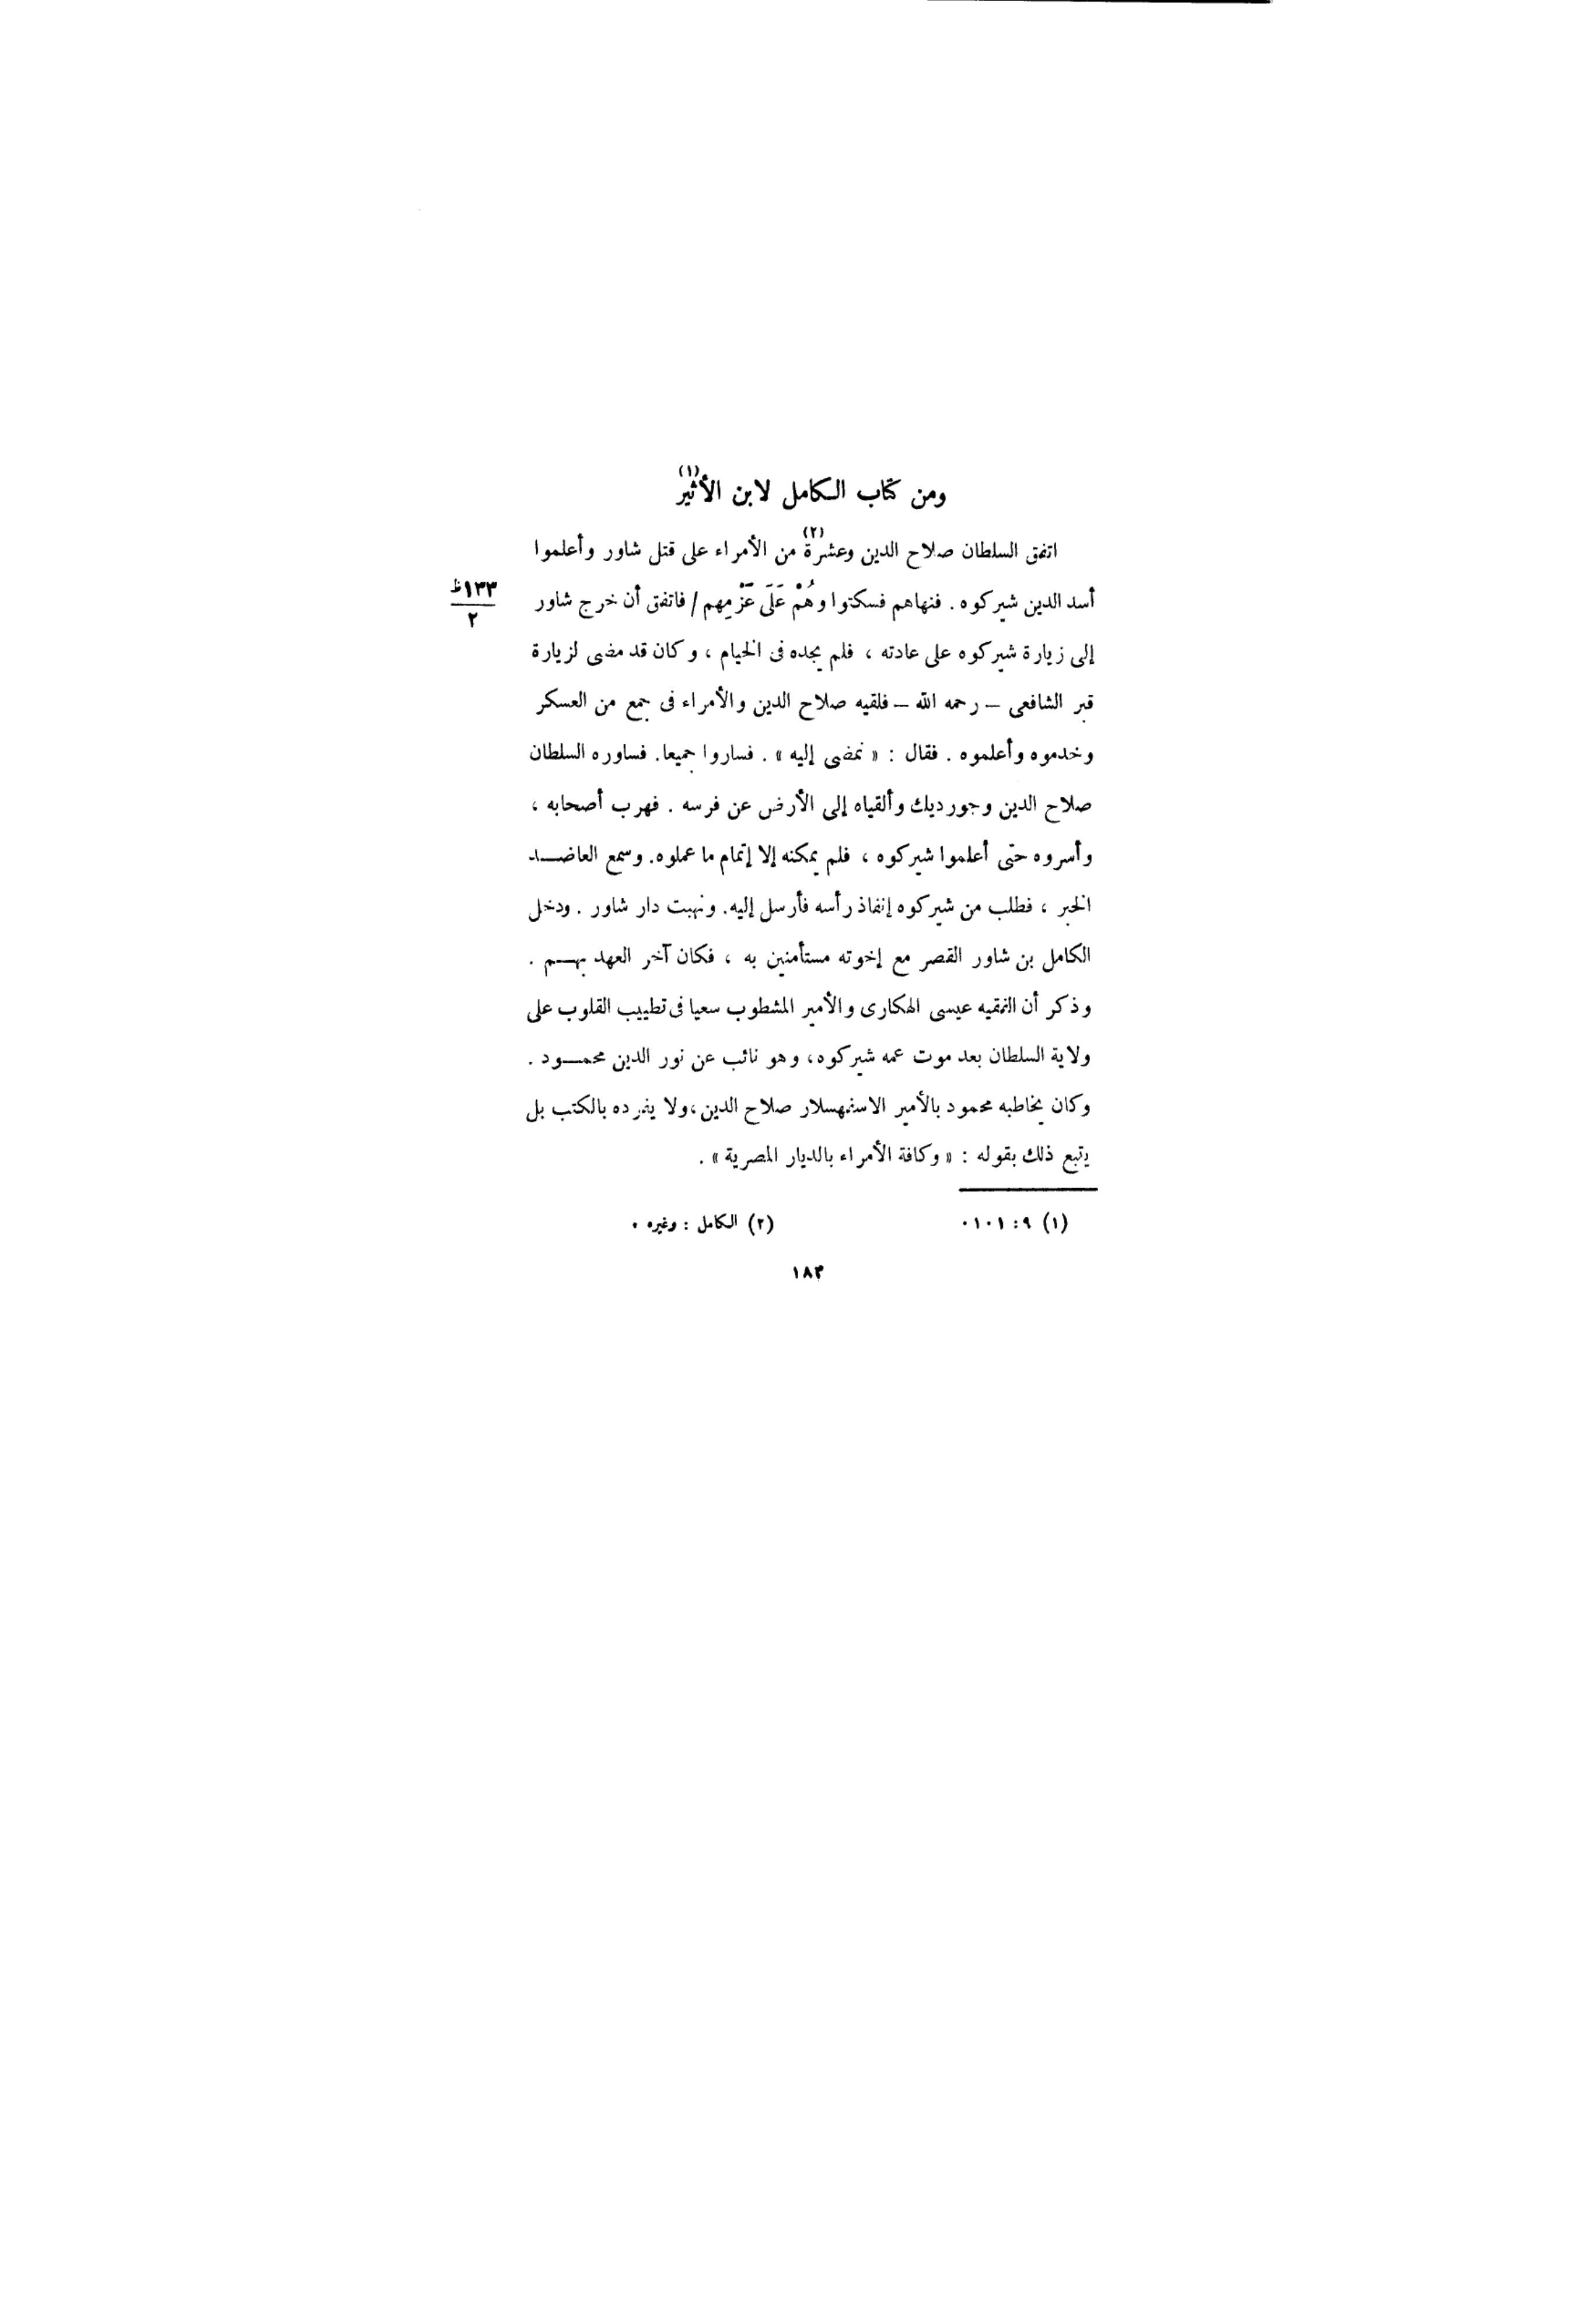 ومن كتاب الكامل لابن الأثير(١)
اتفق السلطان صلاح الدين وعشرة(٢) من الأمراء على قتل شاور وأعلموا
أسد الدين شيركوه . فنهاهم فسكتوا وهُمْ عَلَى عَزْمِهم / فاتفق أن خرج شاور
١٣٣ظ
٢
إلى زيارة شيركوه على عادته ، فلم يجده فى الخيام ، وكان قد مضى لزيارة
قبر الشافعى – رحمه الله – فلقيه صلاح الدين والأمراء فى جمع من العسكر
وخدموه وأعلموه . فقال : « نمضى إليه » . فساروا جميعا. فساوره السلطان
صلاح الدين وجورديك وألقياه إلى الأرض عن فرسه . فهرب أصحابه ،
وأسروه حتى أعلموا شيركوه ، فلم يمكنه إلا إتمام ما عملوه. وسمع العاضـــد
الخبر ، فطلب من شيركوه إنفاذ رأسه فأرسل إليه. ونهبت دار شاور . ودخل
الكامل بن شاور القصر مع إخوته مستأمنين به ، فكان آخر العهد بهــم .
وذكر أن الفقيه عيسى الهكارى والأمير المشطوب سعيا فى تطييب القلوب على
ولاية السلطان بعد موت عمه شيركوه، وهو نائب عن نور الدين محمــود .
وكان يخاطبه محمود بالأمير الاسفهسلار صلاح الدين ،ولا يفرده بالكتب بل
يتبع ذلك بقوله : « وكافة الأمراء بالديار المصرية » .
(١) ٩ : ١٠١٠
(٢) الكامل : وغيره .
١٨٣